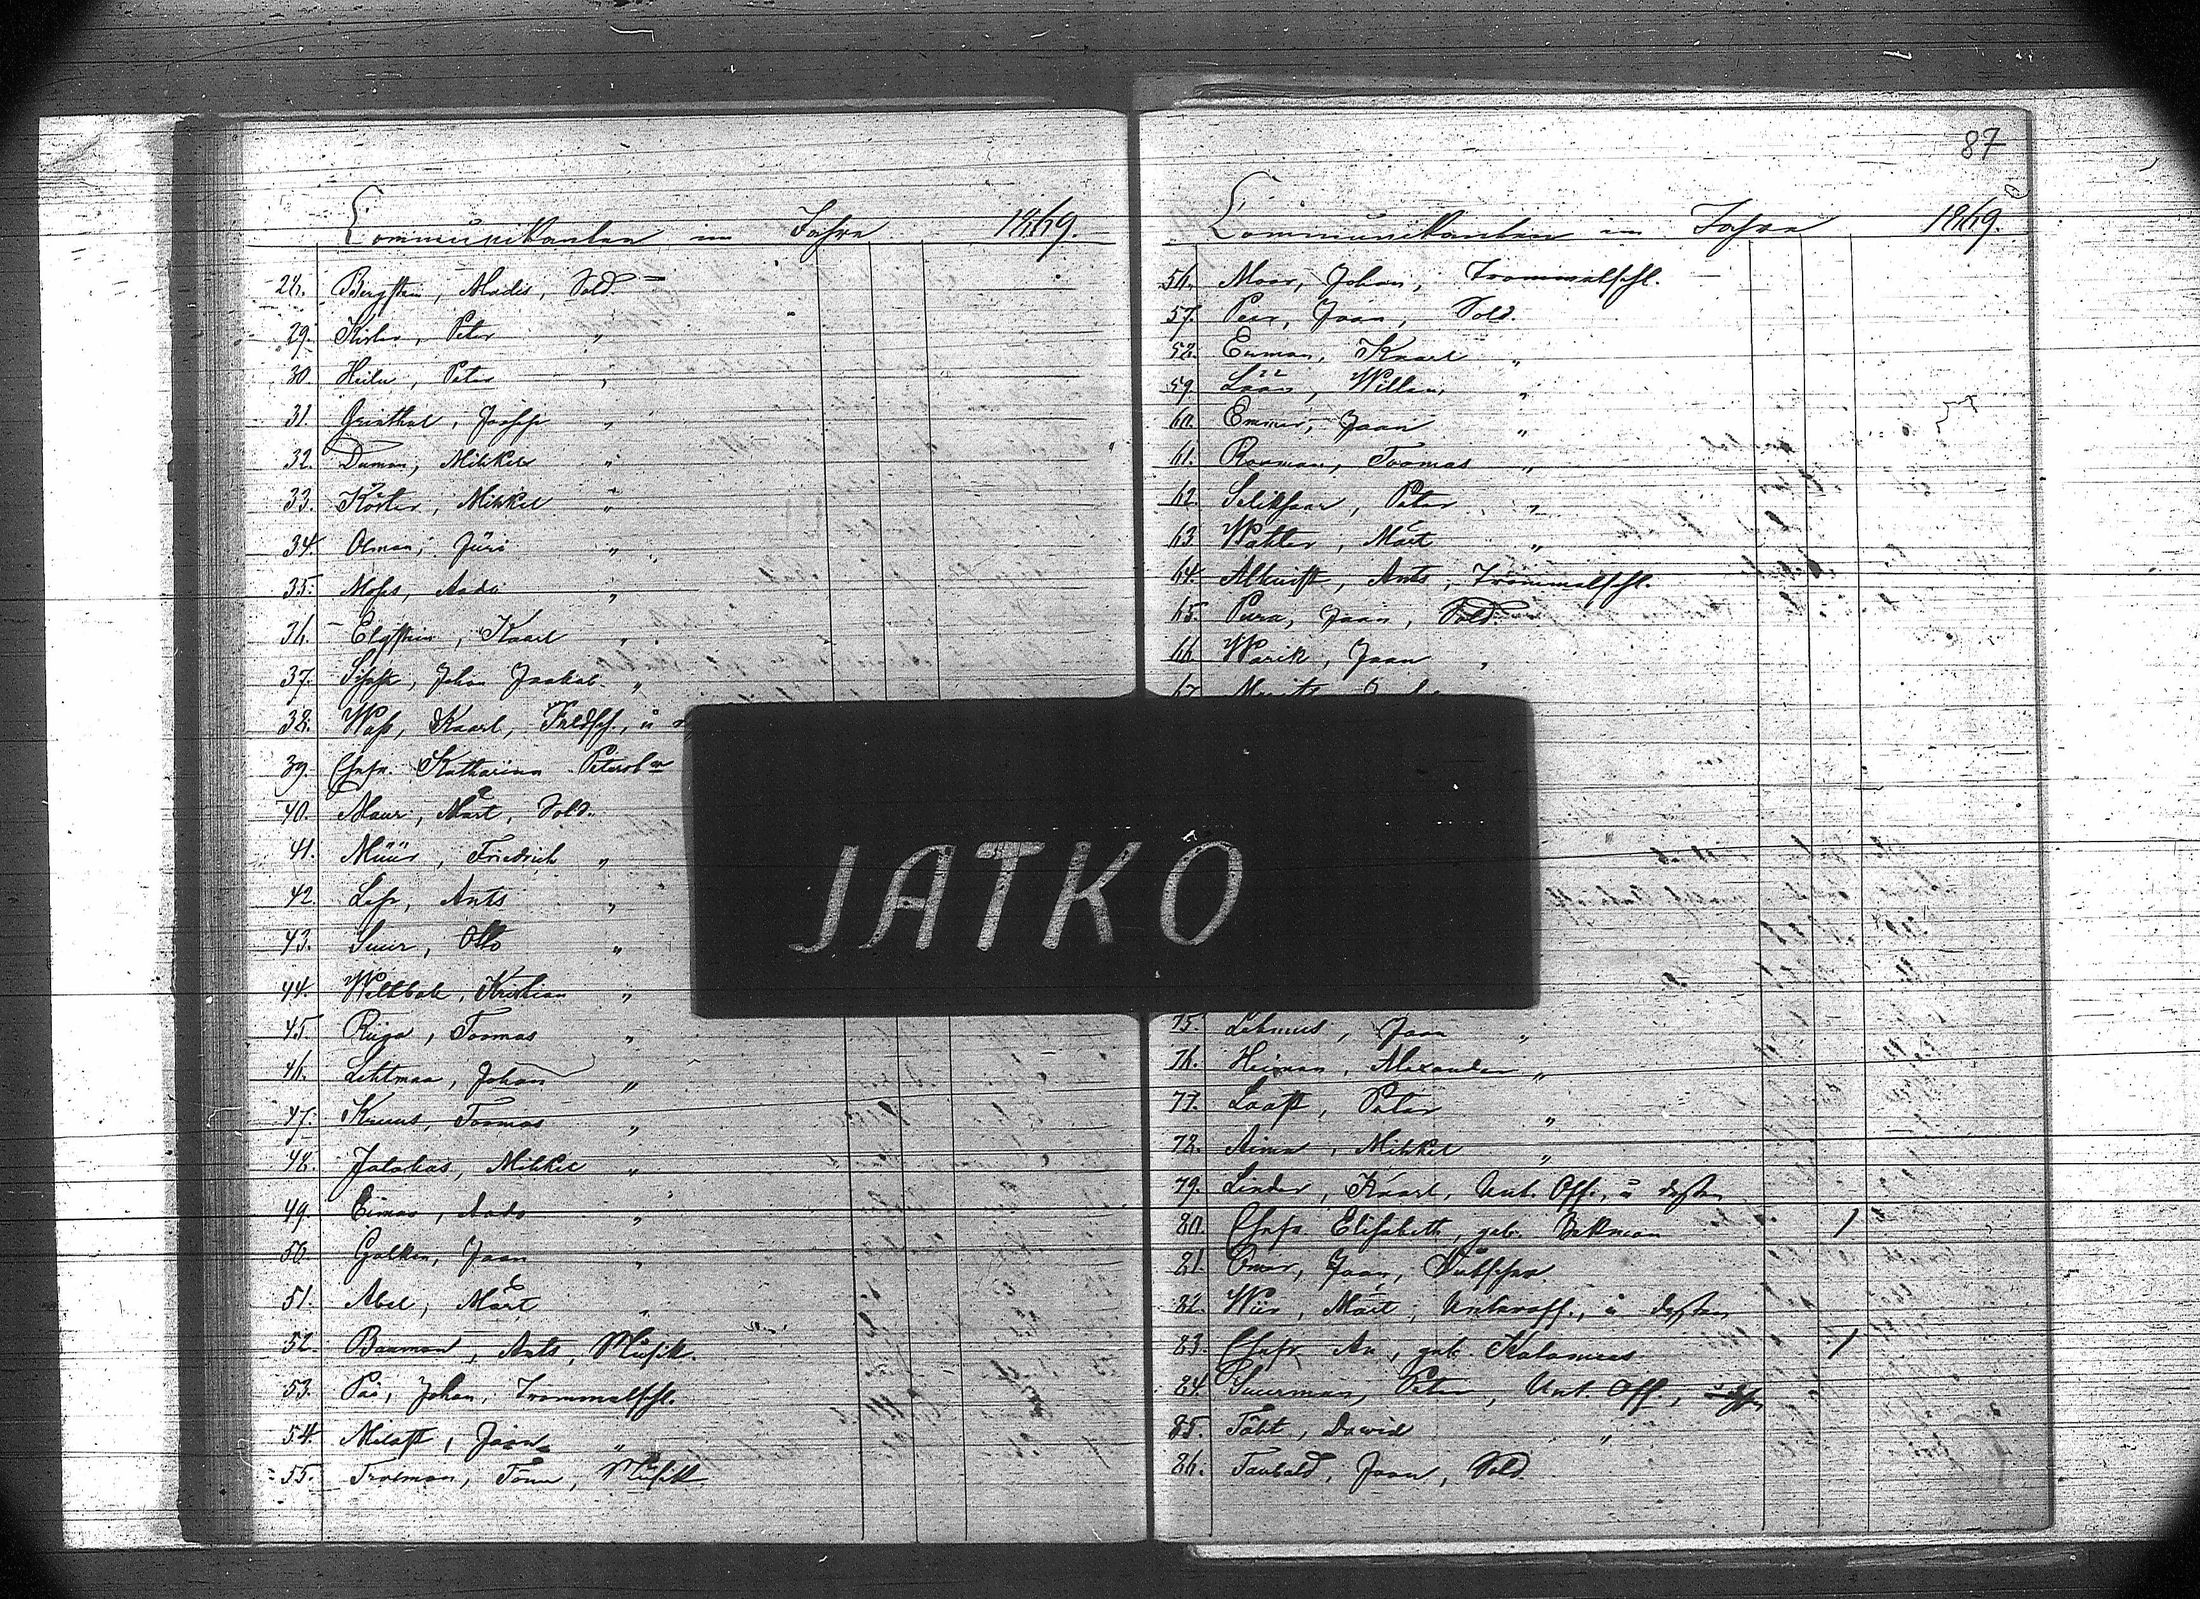 Communikanten im Jahre 1869.
28. Bergstein, Madis, Sold.
29. Kirler, Peter "
30. Heilu, Peter "
31. Grinthal, Joosep "
32. Duman, Mihkel "
33. Köster, Mihkel "
34. Olman, Jüri "
35. Moses, Aado "
36. Elgstein, Kaarl "
37. Johan Jaakab "
38. Wass, Kaarl, Feldsch., u
39. Ehefr. Katharina
40. Maur, Märt, Sold.
41. Müür, Friedrich "
42. Ants "
43. Suur, Otto "
44. Kristian "
45. Riiga, Toomas "
46. Lehtmaa, Johan "
47. Kruus, Toomas "
48. Jalakas, Mihkel "
49. Eimas, Aado "
50. Galken, Jaan "
51. Abel, Märt "
52. Bauman, Ants, Musik.
53. Johan, Trommelschl.
54. Jaan "
55. Tõnu, Musik.
87
Communikanten im Jahre 1869.
56. Moor, Johan, Trommelschl.
57. Peer, Jaan, Sold.
58. Enman, Kaarl "
59. Lään, Willem "
60. Emmer, Jaan "
61. Rooman, Toomas "
62. Seliksaar, Peter "
63. Wahter, Märt "
64. Ants, Trommelschl.
65. Pura, Jaan, Sold.
66. Warik, Jaan "
67.
JATKO
75. Lehmus, Jaan "
76. Heiman, Alexander "
77. Laast, Peter "
78. Aima, Mihkel "
79. Linder, Kaarl, Unt. Off., u. dessen
80. Ehefr. Elisabeth, geb. Bekman /
81. Omar, Jaan,
82. Wiir, Märt, Unteroff., u. dessen
83. Ehefr. An, geb. Kalamees /
84. Suurman, Peter, Unt. Off.,
85. Täht, David "
86. Taubald, Jaan, Sold